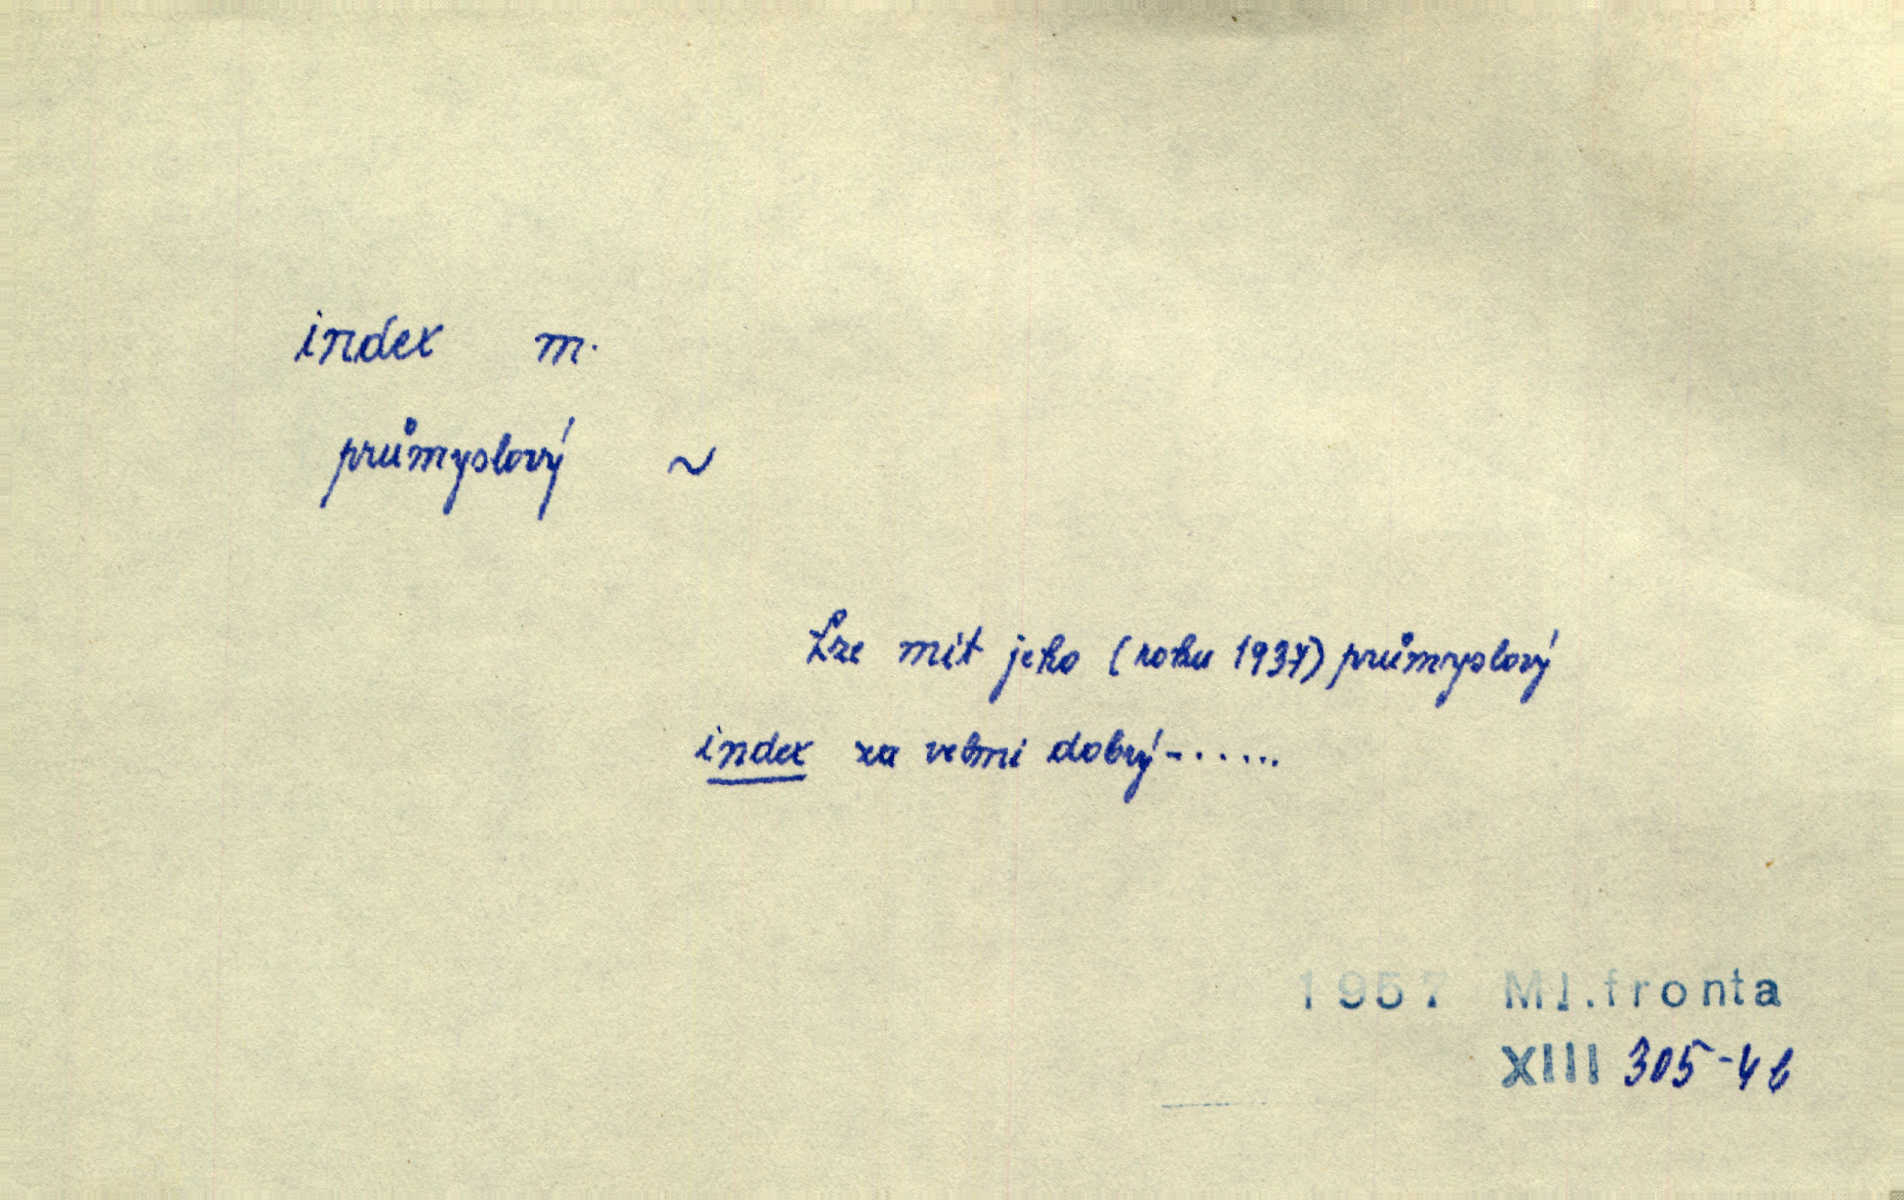 index m.
průmyslový ~
Lze mít jeho (roku 1937) průmyslový
index za velmi dobrý-......
1957 Ml.fronta
XIII 305-4b